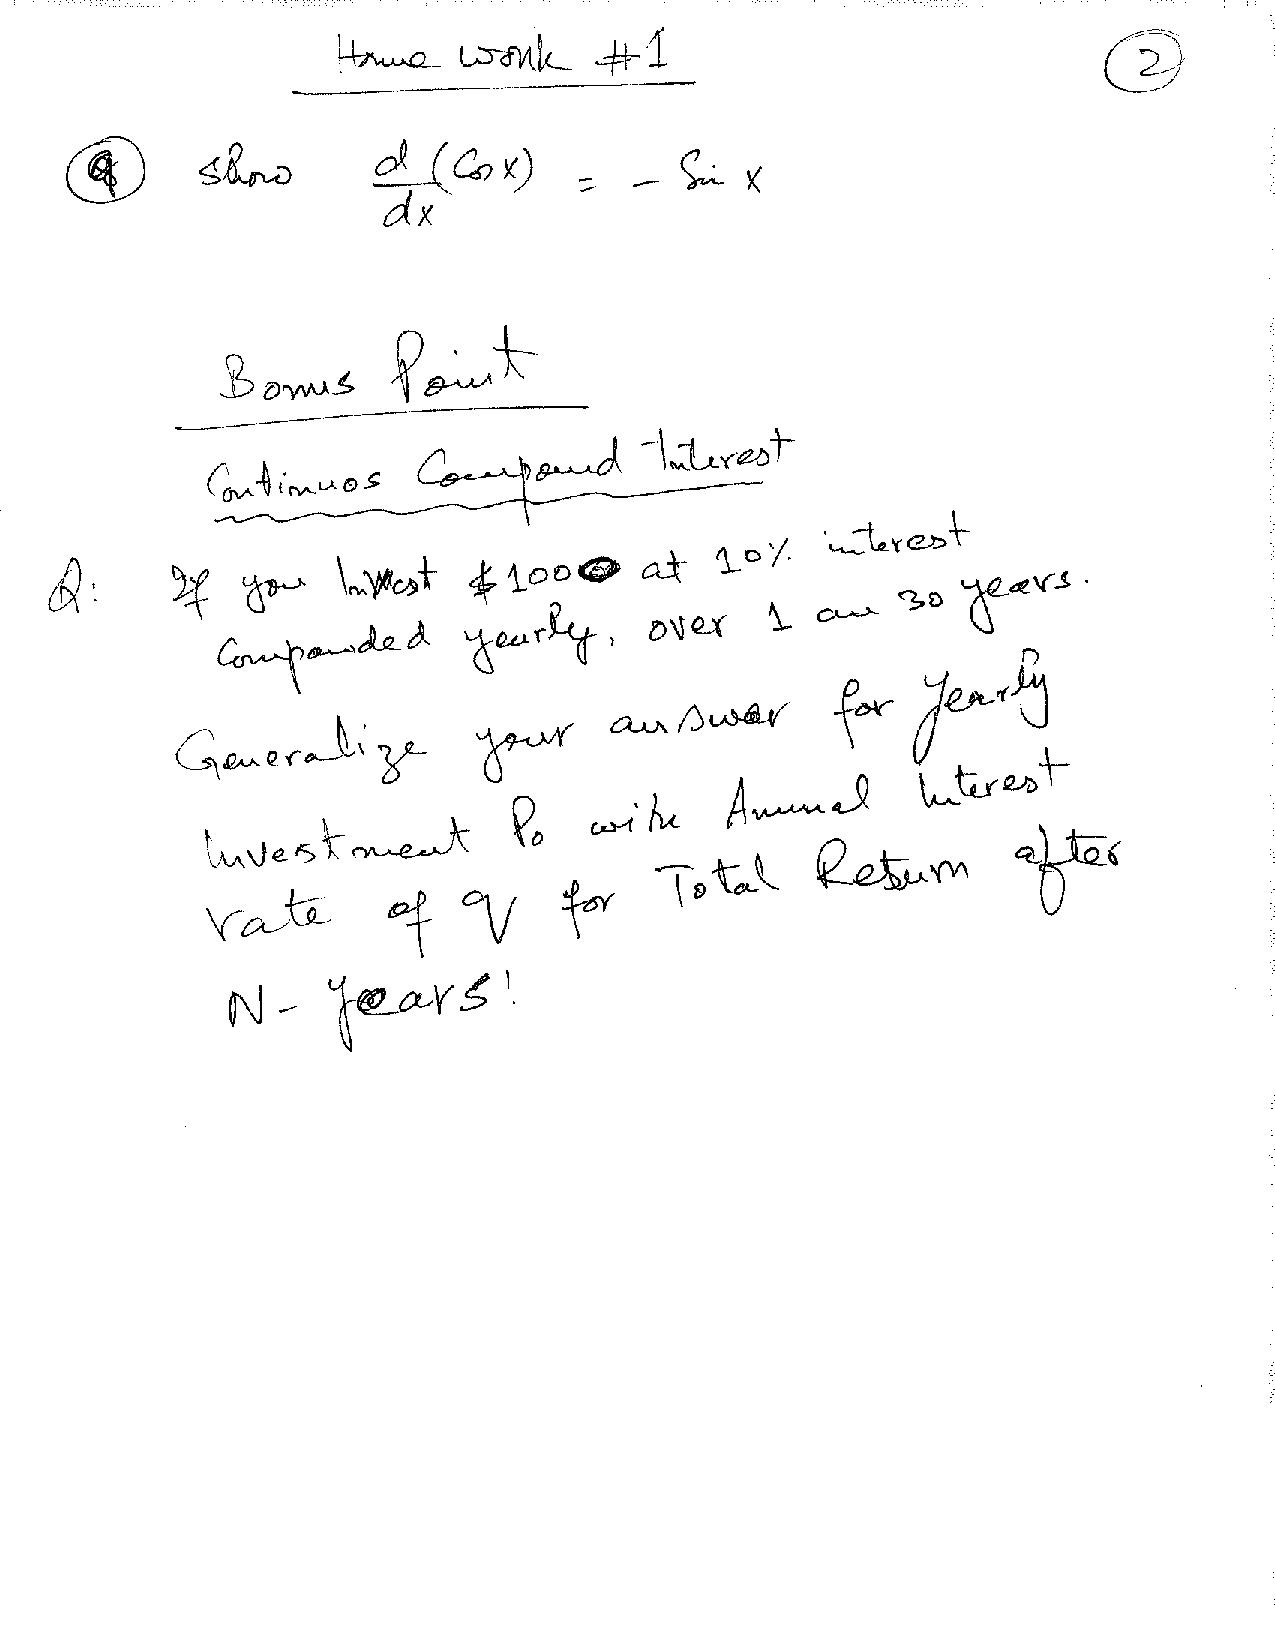 Home Work #1
2
show d/dx (Cos x) = - Sin x
Bonus Point
Continuos Compound Interest
Q: If you Invest $1000 at 10% interest
Compounded yearly, over 1 an 30 years.
Generalize your answer for Yearly
Investment Po with Annual Interest
rate of q for Total Return after
N- Years!